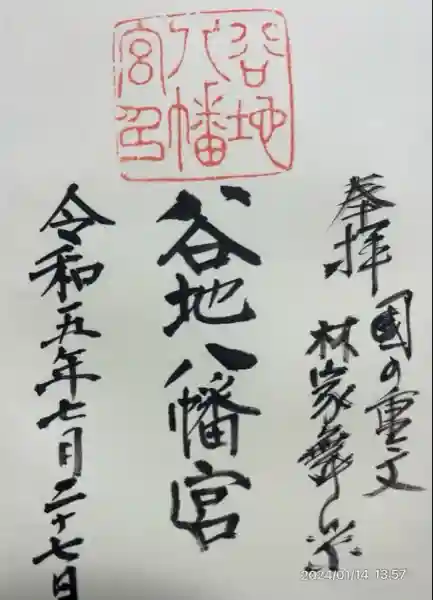 奉拝
國の重文
林家舞楽
谷地八幡宮
谷地
八幡
宮印
令和五年七月二十七日
2024/01/14 13:57